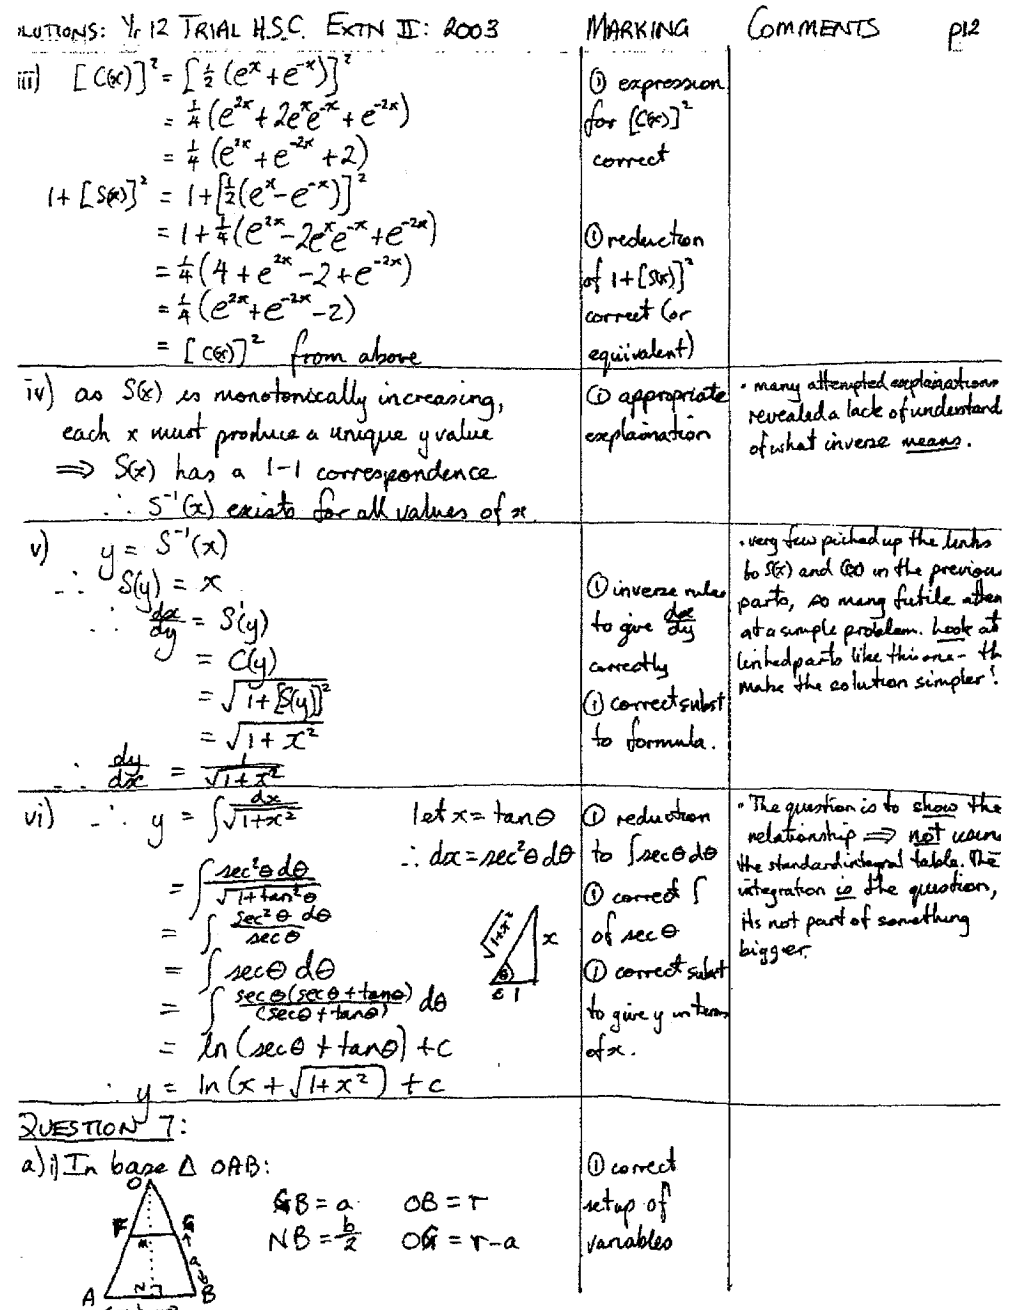 LUTIONS: Yr 12 TRIAL H.S.C. EXTN II: 2003 MARKING COMMENTS p12
iii) [C(x)]² = [½(eˣ + e⁻ˣ)]²
= ¼(e²ˣ + 2eˣe⁻ˣ + e⁻²ˣ)
= ¼(e²ˣ + e⁻²ˣ + 2)
1 + [S(x)]² = 1 + [½(eˣ - e⁻ˣ)]²
= 1 + ¼(e²ˣ - 2eˣe⁻ˣ + e⁻²ˣ)
= ¼(4 + e²ˣ - 2 + e⁻²ˣ)
= ¼(e²ˣ + e⁻²ˣ - 2)
= [C(x)]² from above
① expression
for [C(x)]²
correct
① reduction
of 1 + [S(x)]²
correct (or
equivalent)
iv) as S(x) is monotonically increasing,
each x must produce a unique y value
⇒ S(x) has a 1-1 correspondence
∴ S⁻¹(x) exists for all values of x
① appropriate
explaination
· many attempted explainations
revealed a lack of understand
of what inverse means.
v) y = S⁻¹(x)
∴ S(y) = x
∴ dx/dy = S'(y)
= C(y)
= √(1 + [S(y)]²)
= √(1 + x²)
∴ dy/dx = 1/√(1 + x²)
① inverse rules
to give dx/dy
correctly
① correct subst
to formula.
· very few picked up the links
to S(x) and C(x) in the previous
parts, so many futile attem
at a simple problem. Look at
linked parts like this one - th
make the solution simpler!
vi) ∴ y = ∫ dx/√(1+x²) let x = tan θ
∴ dx = sec²θ dθ
= ∫ sec²θ dθ/√(1+tan²θ)
= ∫ sec²θ dθ/sec θ
= ∫ sec θ dθ
= ∫ sec θ(sec θ + tan θ)/(sec θ + tan θ) dθ
= ln(sec θ + tan θ) + c
∴ y = ln(x + √(1+x²)) + c
√(1+x²) x
θ
1
① reduction
to ∫sec θ dθ
① correct ∫
of sec θ
① correct subst
to give y in terms
of x.
· The question is to show the
relationship ⇒ not usin
the standard integral table. The
integration is the question,
its not part of something
bigger.
QUESTION 7:
a) i) In base Δ OAB:
GB = a OB = r
NB = b/2 OG = r-a
O
F G
M
a
A N B
① correct
setup of
variables